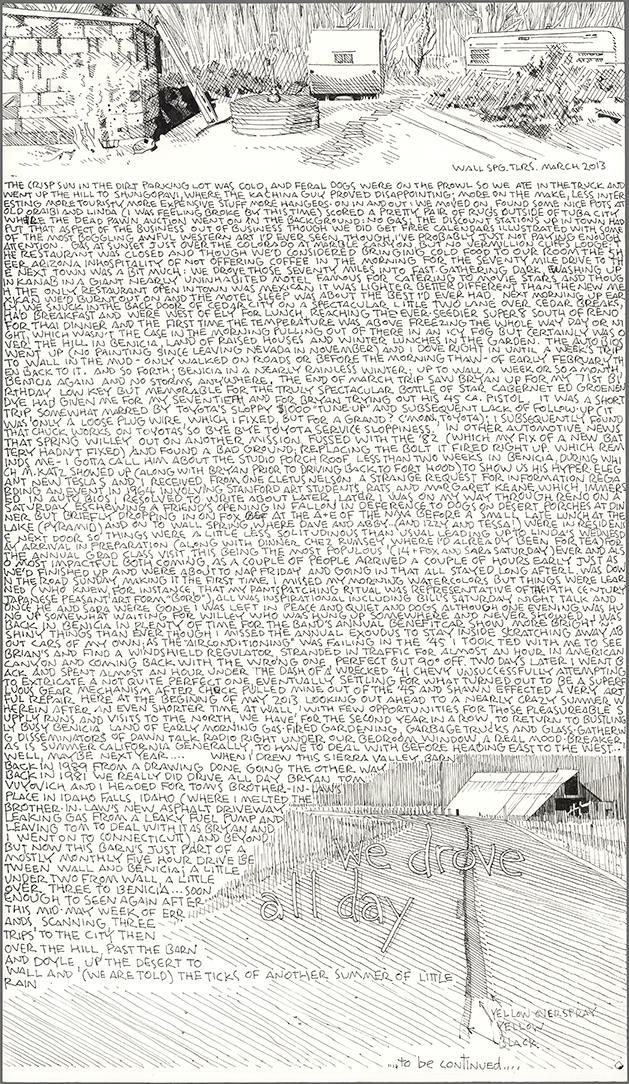 WALL SPG. TLRS. MARCH 2013
THE CRISP SUN IN THE DIRT PARKING LOT WAS COLD, AND FERAL DOGS WERE ON THE PROWL SO WE ATE IN THE TRUCK AND
WENT UP THE HILL TO SHUNGOPAVI, WHERE THE KACHINA GUY PROVED DISAPPOINTING; MORE ON THE MAKE, LESS INTER
ESTING MORE TOURISTY, MORE EXPENSIVE STUFF MORE HANGERS-ON IN AND OUT; WE MOVED ON, FOUND SOME NICE POTS AT
OLD ORAIBI AND LINDA (I WAS FEELING BROKE BY THIS TIME) SCORED A PRETTY PAIR OF RUGS OUTSIDE OF TUBA CITY
WHERE THE DEAD PAWN AUCTION WENT ON IN THE BACKGROUND; NO GAS, THE DISCOUNT STATIONS UP IN TOWN HAD
PUT THAT ASPECT OF THE BUSINESS OUT OF BUSINESS THOUGH WE DID GET FREE CALENDARS ILLUSTRATED WITH SOME
OF THE MOST BOGGLING AWFUL WESTERN ART I'D EVER SEEN, THOUGH I'VE PROBABLY JUST NOT PAYING ENOUGH
ATTENTION. GAS AT SUNSET JUST OVER THE COLORADO AT MARBLE CANYON, BUT NO VERMILION CLIFFS LODGE, T
HE RESTAURANT WAS CLOSED AND THOUGH WE'D CONSIDERED BRINGING COLD FOOD TO OUR ROOM THE SH
EER ARIZONA INHOSPITALITY OF NOT OFFERING COFFEE IN THE MORNING FOR THE SEVENTY MILE DRIVE TO TH
E NEXT TOWN WAS A BIT MUCH: WE DROVE THOSE SEVENTY MILES INTO FAST GATHERING DARK, WASHING UP
IN KANAB IN A GIANT NEARLY UNINHABITED MOTEL FAMOUS FOR CATERING TO MOVIE STARS, AND THOUG
H THE ONLY RESTAURANT OPEN IN TOWN WAS MEXICAN, IT WAS LIGHTER BETTER DIFFERENT THAN THE NEW ME
XICAN WE'D BURNT OUT ON AND THE MOTEL SLEEP WAS ABOUT THE BEST I'D EVER HAD. NEXT MORNING UP EAR
LY WE SNUCK IN THE BACK DOOR OF CEDAR CITY ON A SPECTACULAR LITTLE TWO LANE OVER CEDAR BREAKS,
HAD BREAKFAST AND WERE WEST OF ELY FOR LUNCH, REACHING THE EVER-SEEDIER SUPER 8 SOUTH OF RENO
FOR THAI DINNER AND THE FIRST TIME THE TEMPERATURE WAS ABOVE FREEZING THE WHOLE WAY DAY OR NI
GHT, WHICH WASN'T THE CASE IN THE MORNING PULLING OUT OF THERE IN AN ICY FOG BUT CERTAINLY WAS O
VER THE HILL IN BENICIA, LAND OF RAISED HOUSES AND WINTER LUNCHES IN THE GARDEN. THE AUTO BIOS
WENT UP (NO PAINTING SINCE LEAVING NEVADA IN NOVEMBER) AND I DOVE RIGHT IN UNTIL A WEEK'S TRIP
TO WALL IN THE MUD - ONLY WALKED ON ROADS OR BEFORE THE MORNING THAW - OF EARLY FEBRUARY TH
EN BACK TO IT. AND SO FORTH; BENICIA IN A NEARLY RAINLESS WINTER; UP TO WALL A WEEK OR SO A MONTH,
BENICIA AGAIN AND NO STORMS ANYWHERE. THE END OF MARCH TRIP SAW BRYAN UP FOR MY 71ST BI
RTHDAY LOW KEY BUT MEMORABLE FOR THE TRULY SPECTACULAR BOTTLE OF STAR CABERNET ED GROENEN
DYKE HAD GIVEN ME FOR MY SEVENTIETH AND FOR BRYAN TRYING OUT HIS 45 CA. PISTOL. IT WAS A SHORT
TRIP SOMEWHAT MARRED BY TOYOTA'S SLOPPY $1000 "TUNE-UP" AND SUBSEQUENT LACK OF FOLLOW-UP (IT
WAS ONLY A LOOSE PLUG WIRE, WHICH I FIXED, BUT FOR A GRAND? C'MON, TOYOTA); I SUBSEQUENTLY FOUND
THAT CHUCK WORKS ON TOYOTAS SO BYE BYE TOYOTA SERVICE SLOPPINESS. IN OTHER AUTOMOTIVE NEWS
THAT SPRING WILLEY, OUT ON ANOTHER MISSION, FUSSED WITH THE '82 (WHICH MY FIX OF A NEW BAT
TERY HADN'T FIXED) AND FOUND A BAD GROUND; REPLACING THE BOLT IT FIRED RIGHT UP. WHICH REM
INDS ME - I GOTTA CALL HIM ABOUT THE STUDIO PORCH ROOF. LESS THAN TWO WEEKS IN BENICIA, DURING WHI
CH M. KATZ SHOWED UP (ALONG WITH BRYAN PRIOR TO DRIVING BACK TO FORT HOOD) TO SHOW US HIS HYPER-ELEG
ANT NEW TESLA S AND I RECEIVED, FROM ONE CLETUS NELSON A STRANGE REQUEST FOR INFORMATION REGA
RDING AN EVENT IN 1964 INVOLVING STANFORD ART STUDENTS, RATS AND MARGARET KEANE WHICH, IMMERS
ED IN AUTO BIOS, I RESOLVED TO WRITE ABOUT LATER. LATER I WAS ON MY WAY THROUGH RENO ON A
SATURDAY, ESCHEWING A FRIENDS OPENING IN FALLON IN DEFERENCE TO DOGS ON DESERT PORCHES AT DIN
NER BUT BRIEFLY DROPPING IN ON FOX AT THE A+E OF THE NMA BEFORE A SMALL LATE LUNCH AT THE
LAKE (PYRAMID) AND ON TO WALL SPRING WHERE DAVE AND ABBY - (AND IZZY AND TESSA!) WERE IN RESIDENC
E NEXT DOOR SO THINGS WERE A LITTLE LESS SOLITUDINOUS THAN USUAL LEADING UP TO LINDA'S WEDNESD
AY ARRIVAL IN PREPARATION (ALONG WITH DINNER CHEZ RUMSEY WHERE I'D ALREADY BEEN FOR TEA) FOR
THE ANNUAL GRAD CLASS VISIT, THIS BEING THE MOST POPULOUS (14 + FOX AND SARA SATURDAY) EVER AND ALS
O MOST IMPACTFUL BOTH COMING, AS A COUPLE OF PEOPLE ARRIVED A COUPLE OF HOURS EARLY JUST AS
WE'D FINISHED UP AND WERE ABOUT TO NAP FRIDAY AND GOING IN THAT ALL STAYED LONG AFTER I WAS DOW
N THE ROAD SUNDAY, MAKING IT THE FIRST TIME I MISSED MY MORNING WATERCOLORS BUT THINGS WERE LEAR
NED (WHO KNEW, FOR INSTANCE, THAT MY PANTSPATCHING RITUAL WAS REPRESENTATIVE OF THE 19TH CENTURY
JAPANESE PEASANT ART FORM, "BORO"). ALL WAS INSPIRATIONAL INCLUDING BILL'S SATURDAY NIGHT TALK AND
ONCE HE AND SARA WERE GONE I WAS LEFT IN PEACE AND QUIET AND DOGS ALTHOUGH ONE EVENING WAS HU
NG UP SOMEWHAT WAITING FOR WILLEY WHO WAS HUNG UP SOMEWHERE AND NEVER SHOWED. I WAS
BACK IN BENICIA IN PLENTY OF TIME FOR THE BAND'S ANNUAL BENEFIT CAR SHOW, MORE BRIGHT W
SHINY THINGS THAN EVER THOUGH I MISSED THE ANNUAL EXODUS TO STAY INSIDE SCRATCHING AWAY AB
OUT CARS OF MY OWN. AS THE "AIRCONDITIONING" WAS FAILING IN THE '45 I TOOK TED WITH ME TO SEE
BRIAN'S AND FIND A WINDSHIELD REGULATOR, STRANDED IN TRAFFIC FOR ALMOST AN HOUR IN AMERICAN
CANYON AND COMING BACK WITH THE WRONG ONE, PERFECT BUT 90° OFF. TWO DAYS LATER I WENT B
ACK AND SPENT ALMOST AN HOUR UNDER THE DASH OF A WRECKED '41 CHEVY UNSUCCESSFULLY ATTEMPTING
TO EXTRICATE A NOT QUITE PERFECT ONE, EVENTUALLY SETTLING FOR WHAT TURNED OUT TO BE A SUPERF
LUOUS GEAR MECHANISM AFTER CHUCK PULLED MINE OUT OF THE '45 AND SHAWN EFFECTED A VERY ART
FUL REPAIR. HERE AT THE BEGINNING OF MAY 2013 LOOKING OUT AHEAD TO A NEARLY CRAZY SUMMER W
HEREIN AFTER AN EVEN SHORTER TIME AT WALL, WITH FEW OPPORTUNITIES FOR THOSE PLEASUREABLE S
UPPLY RUNS AND VISITS TO THE NORTH, WE HAVE FOR THE SECOND YEAR IN A ROW, TO RETURN TO BUSTLING
LY BUSY BENICIA LAND OF EARLY MORNING GAS-FIRED GARDENING, GARBAGE TRUCKS AND GLASS-GATHERIN
G DISSEMINATORS OF DAWN TALK RADIO RIGHT UNDER OUR BEDROOM WINDOW, A REAL MOOD BREAKER,
AS IS SUMMER CALIFORNIA GENERALLY, TO HAVE TO DEAL WITH BEFORE HEADING EAST TO THE WEST...
WELL, MAYBE NEXT YEAR..... WHEN I DREW THIS SIERRA VALLEY BARN
BACK IN 1989 FROM A DRAWING DONE GOING THE OTHER WAY
BACK IN 1981 WE REALLY DID DRIVE ALL DAY, BRYAN, TOM
VUYOVICH AND I HEADED FOR TOM'S BROTHER-IN-LAW'S
PLACE IN IDAHO FALLS, IDAHO (WHERE I MELTED THE
BROTHER-IN-LAW'S NEW ASPHALT DRIVEWAY
LEAKING GAS FROM A LEAKY FUEL PUMP AND
LEAVING TOM TO DEAL WITH IT AS BRYAN AND
I WENT ON TO CONNECTICUT) AND BEYOND
BUT NOW THIS BARN'S JUST PART OF A
MOSTLY MONTHLY FIVE HOUR DRIVE BE
TWEEN WALL AND BENICIA; A LITTLE
UNDER TWO FROM WALL, A LITTLE
OVER THREE TO BENICIA...SOON
ENOUGH TO SEEN AGAIN AFTER
THIS MID-MAY WEEK OF ERR
ANDS, SCANNING THREE
TRIPS TO THE CITY THEN
OVER THE HILL, PAST THE BARN
AND DOYLE UP THE DESERT TO
WALL AND (WE ARE TOLD) THE TICKS OF ANOTHER SUMMER OF LITTLE
RAIN
we drove
all day
YELLOW OVERSPRAY
YELLOW
BLACK
...to be continued....